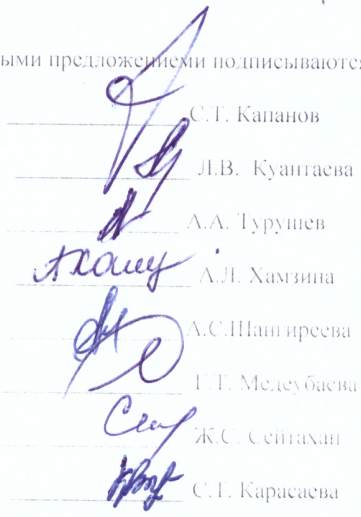 ыми предложениеми подписываются
С.Т. Капанов
Л.В. Куантаева
А.А. Турушев
А.Л. Хамзина
А.С.Шангиреева
Г.Т. Медеубаева
Ж.С. Сейтахан
С.Т. Карасаева